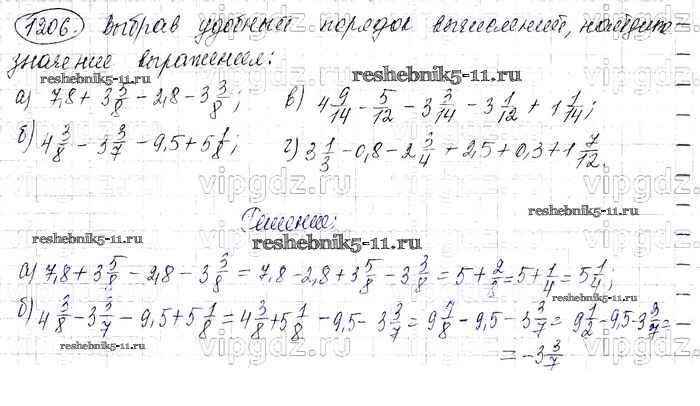 1206. Выбрав удобный порядок вычислений, найдите
значение выражения:
reshebnik5-11.ru
reshebnik5-11.ru
а) 7,8 + 3 5/8 - 2,8 - 3 3/8; в) 4 9/14 - 5/12 - 3 3/14 - 3 1/12 + 1 1/14;
б) 4 3/8 - 3 3/7 - 9,5 + 5 1/8; г) 3 1/3 - 0,8 - 2 3/4 + 2,5 + 0,3 + 1 7/12.
vipgdz.ru
vipgdz.ru
reshebnik5-11.ru
Решение:
reshebnik5-11.ru
reshebnik5-11.ru
а) 7,8 + 3 5/8 - 2,8 - 3 3/8 = 7,8 - 2,8 + 3 5/8 - 3 3/8 = 5 + 2/8 = 5 + 1/4 = 5 1/4;
reshebnik5-11.ru
б) 4 3/8 - 3 3/7 - 9,5 + 5 1/8 = 4 3/8 + 5 1/8 - 9,5 - 3 3/7 = 9 4/8 - 9,5 - 3 3/7 = 9 1/2 - 9,5 - 3 3/7 =
reshebnik5-11.ru
= -3 3/7
vipgdz.ru
vipgdz.ru